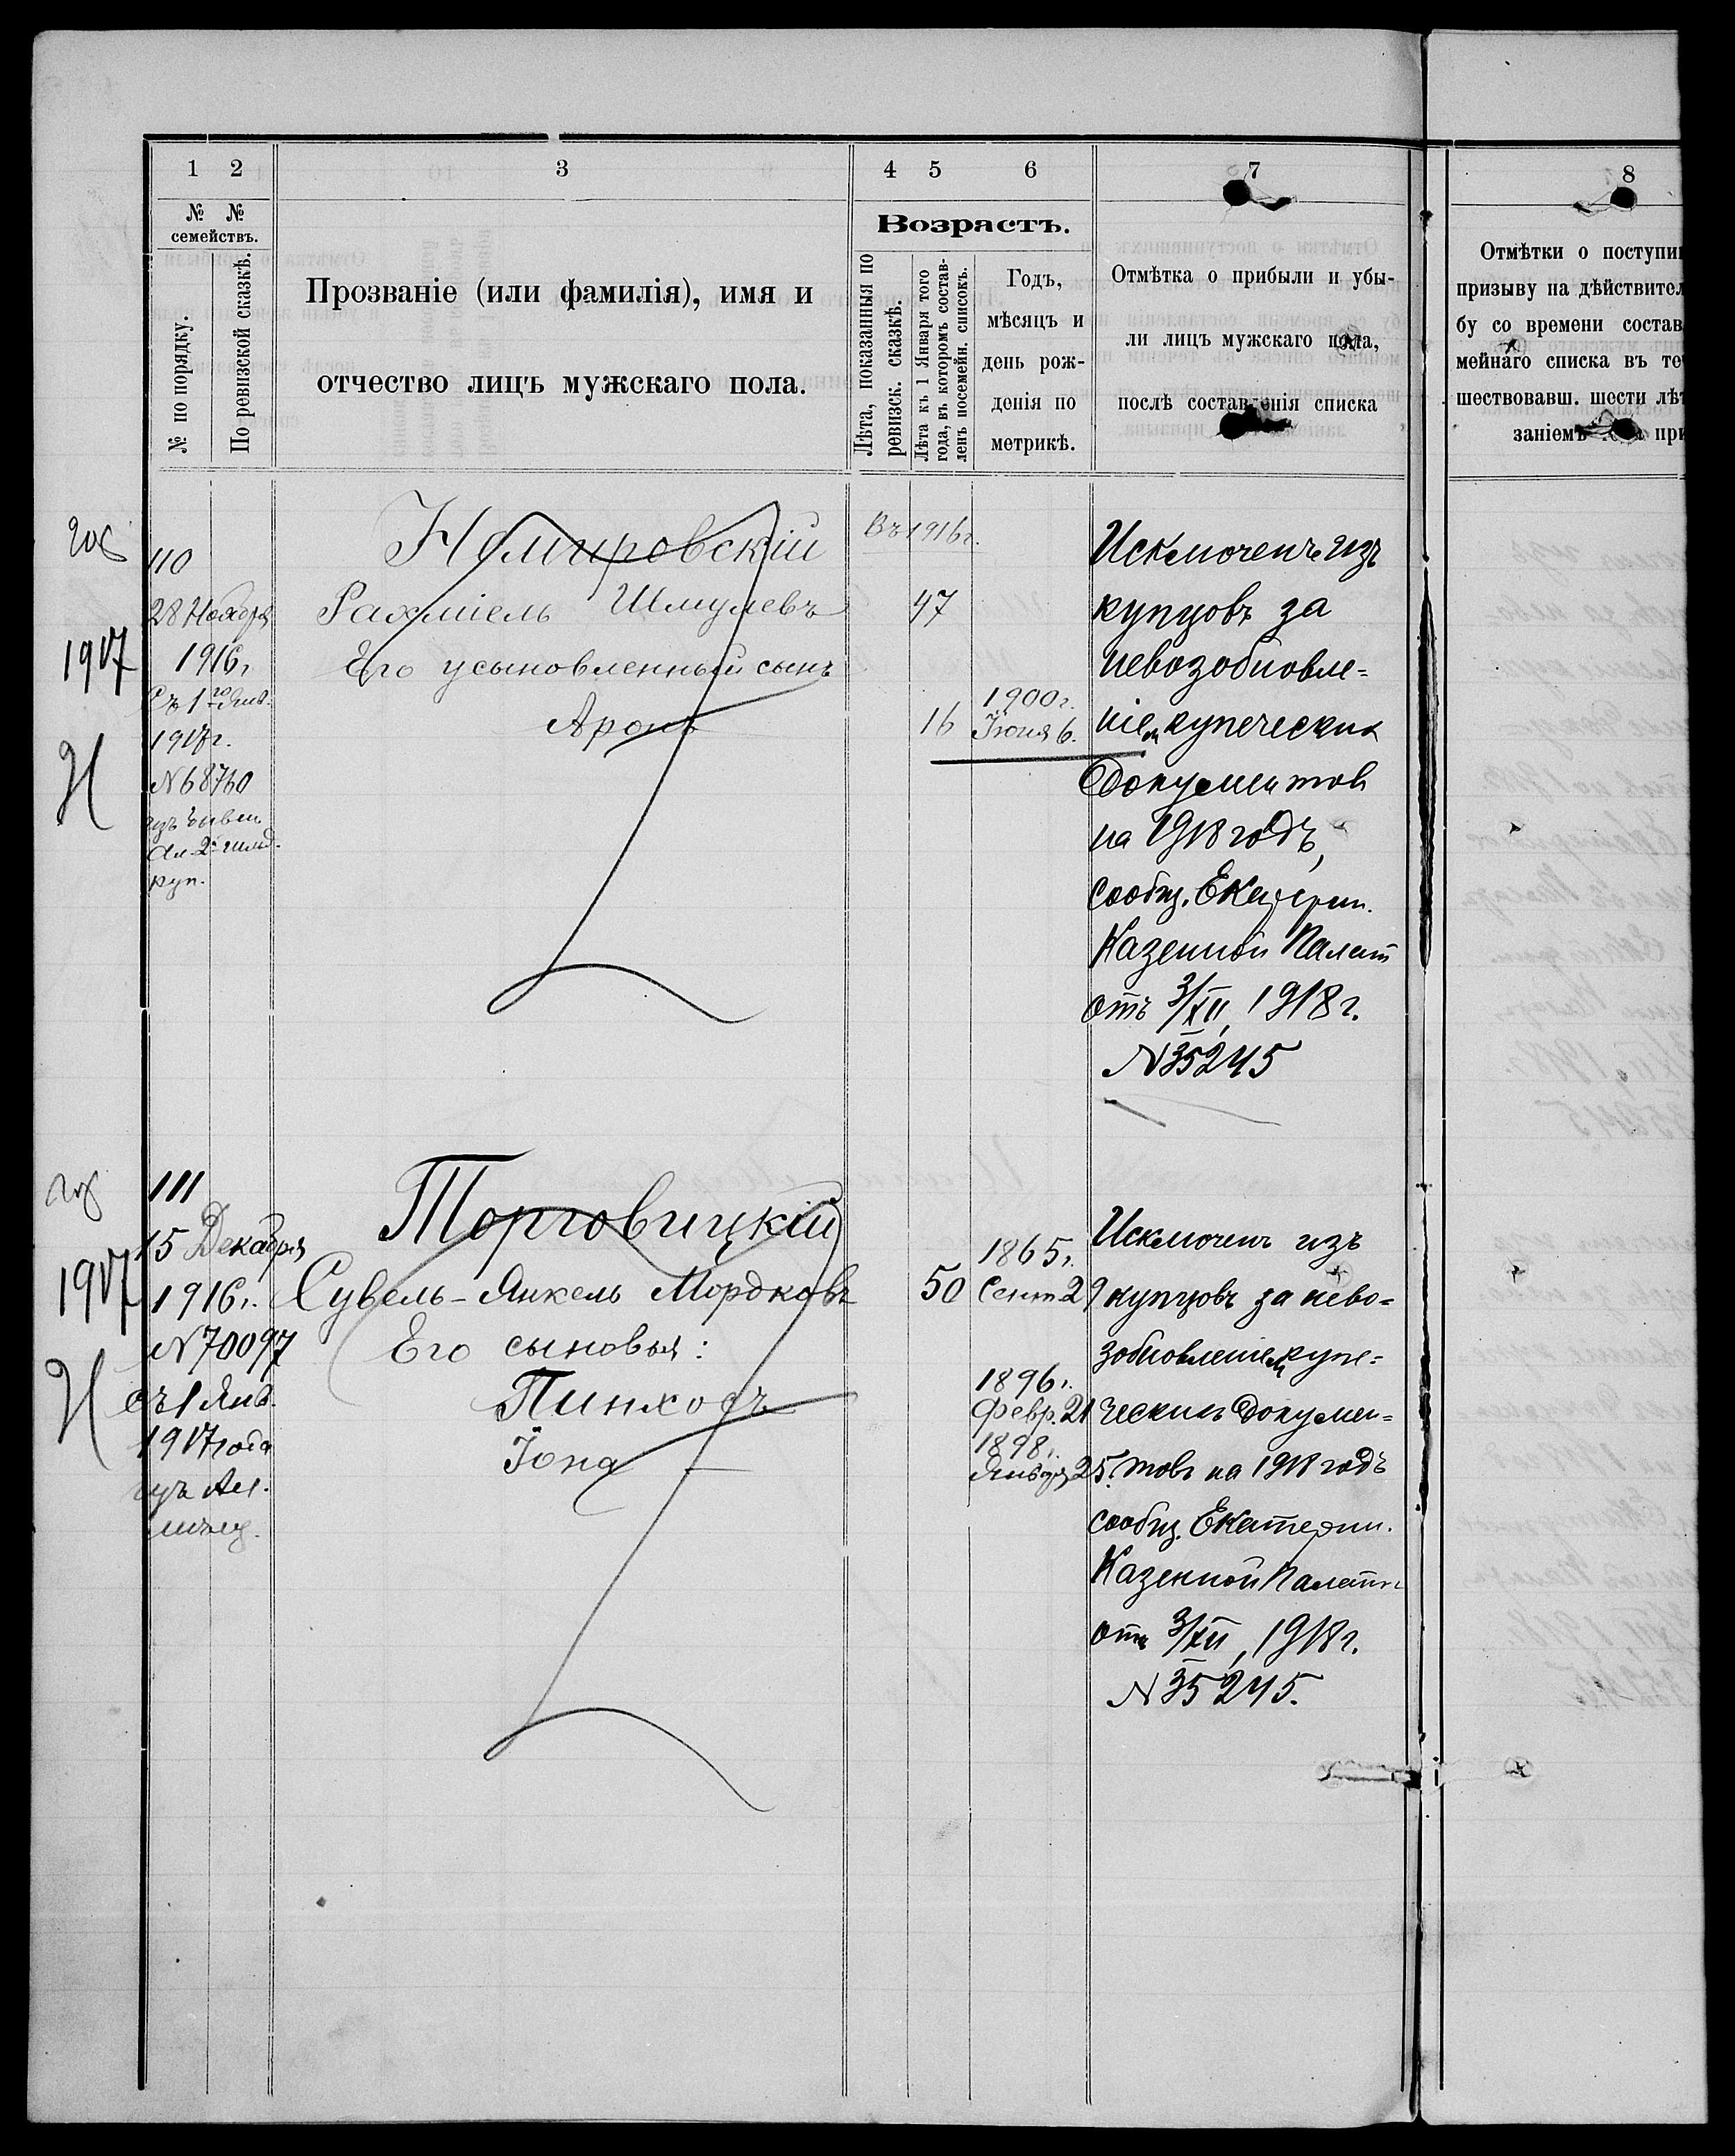 1 2 3 4 5 6 7 8
№ № семействъ.
№ по порядку.
По ревизской сказкѣ.
Прозваніе (или фамилія), имя и
отчество лицъ мужскаго пола.
Возрастъ.
Лѣта, показанныя по
ревизск. сказкѣ.
Лѣта къ 1 Января того
года, въ которомъ состав-
ленъ посемейн. списокъ.
Годъ,
мѣсяцъ и
день рож-
денія по
метрикѣ.
Отмѣтка о прибыли и убы-
ли лицъ мужскаго пола,
послѣ составленія списка
Отмѣтки о поступи
призыву на дѣйствител
бу со времени состав
мейнаго списка въ те
шествовавш. шести лѣт
заніемъ при
1917
110
28 Ноября
1916г.
Съ 1го Янв.
1917г.
N 68760
изъ
Ал. 2й гильд.
куп.
Немировскій
Рахміель Шмулевъ
Его усыновленный сынъ
Аронъ
Въ 1916г.
47
16
1900г.
Іюня 6.
Исключенъ изъ
купцовъ за
невозобновле=
ніем купеческих
документов
на 1918 годъ,
сообщ. Екатерин.
Казенной Палат
отъ 3/XII, 1918г.
N 35245
1917
111
15 Декабря
1916г.
N 70097
съ 1 Янв.
1917 года
изъ Ал.
мѣщ.
Торговицкій
Сувель-Янкель Мордковъ
Его сыновья:
Пинхосъ
Іона
50
1865г.
Сент. 29
1896г.
Февр. 21
1898г.
Января 25.
Исключенъ изъ
купцовъ за нево=
зобновленіем купе=
ческихъ докумен=
товъ на 1918 годъ
сообщ. Екатерин.
Казенной Палаты
отъ 3/XII, 1918г.
N 35245.